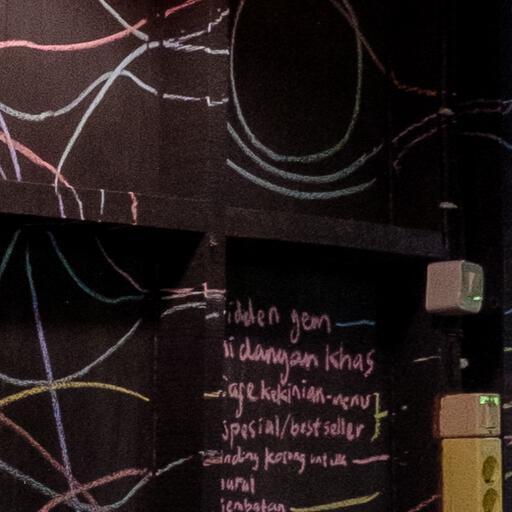 idden gem
idangan khas
age kekinian-menu
spesial/best seller
inding kosong untuk
ural
jembatan